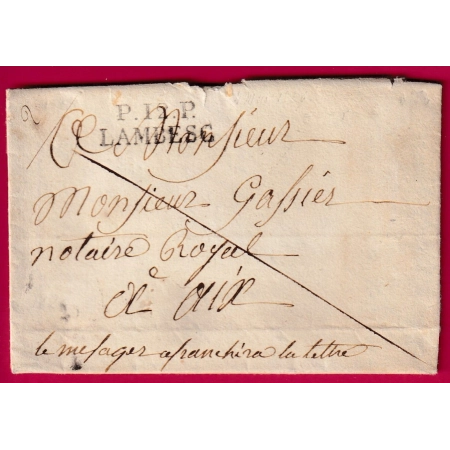 P. 12 P.
LAMBESC
A Monsieur
Monsieur Gassier
notaire Royal
A aix
le mesager afranchira la lettre